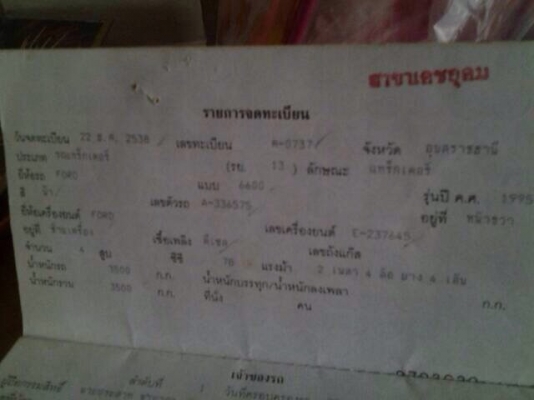 สาขาเดชอุดม
รายการจดทะเบียน
วันจดทะเบียน 22 ธ.ค. 2538 เลขทะเบียน จังหวัด อุบลราชธานี
ประเภท รถแทร็กเตอร์ (รย. 13 ) ลักษณะ แทร็กเตอร์
ยี่ห้อรถ FORD แบบ 6600 รุ่นปี ค.ศ. 1995
สี ฟ้า เลขตัวรถ A-336575 อยู่ที่
ยี่ห้อเครื่องยนต์ FORD เลขเครื่องยนต์ E-237645
อยู่ที่ เชื้อเพลิง ดีเซล เลขถังแก๊ส
จำนวน 4 สูบ ซีซี 78 แรงม้า 2 เพลา 4 ล้อ ยาง 4 เส้น
น้ำหนักรถ 3500 ก.ก. น้ำหนักบรรทุก/น้ำหนักลงเพลา ก.ก.
น้ำหนักรวม 3500 ก.ก. ที่นั่ง คน
เจ้าของรถ
ลำดับที่ 1